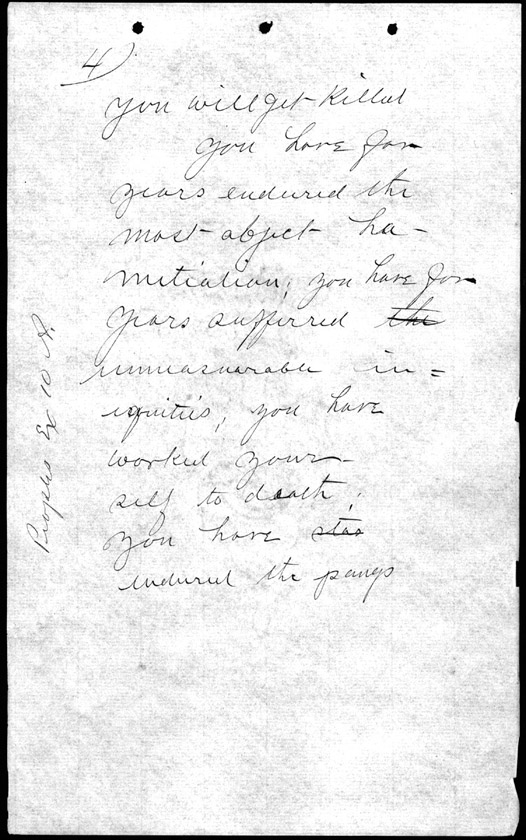 4)
you will get killed
you have for
years endured the
most abject hu-
miliation; you have for
years sufferred the
unmeasurable in=
iquities; you have
worked your-
self to death;
you have stas
endured the pangs
Peoples Ex 10 A.